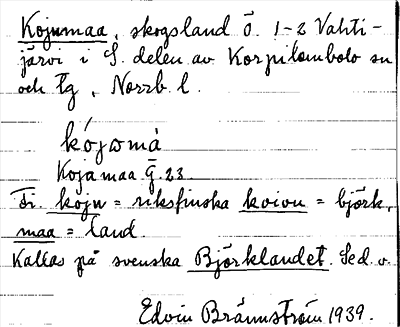 Kojumaa, skogsland Ö. 1-2 Vahti-
järvi i S. delen av Korpilombolo sn
och tg, Norrb l.
kójωmà
Kojamaa G. 23.
Fi. koju = riksfinska koivu = björk,
maa = land.
Kallas på svenska Björklandet. Sed. v.
Edvin Brännström 1939.